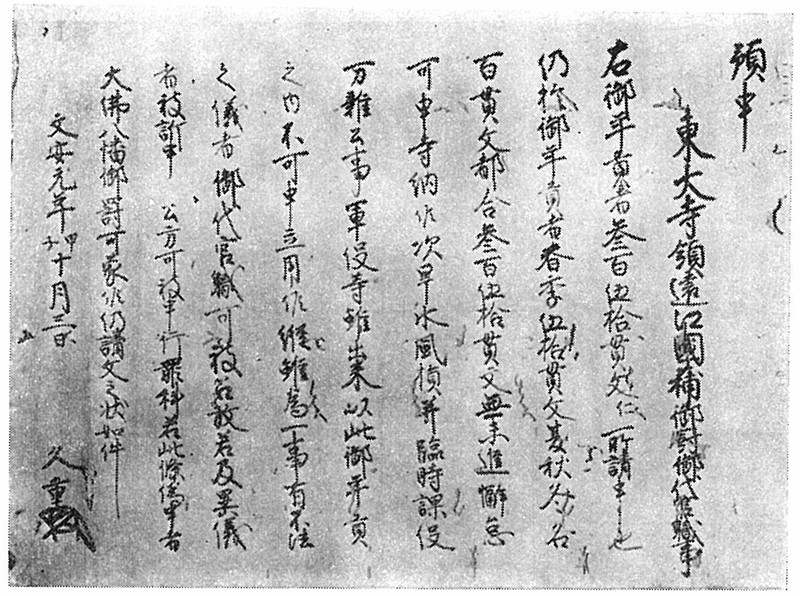 預申
東大寺領遠江國蒲御厨御代官職事
右御年貢者叄百伍拾貫文仁所請申之也
仍於御年貢者春季伍拾貫文夏秋冬各
百貫文都合叄百伍拾貫文無未進懈怠
可申寺納候次旱水風損并臨時課役
万雜公事軍役等雖出来以此御年貢
之内不可申立用候縦雖為一事有不法
之儀者御代官職可被召放若及異儀
者被訴申 公方可被申行罪科若此條偽申者
大佛八幡御罰可蒙候仍請文之状如件
文安元年甲子十月三日 久重